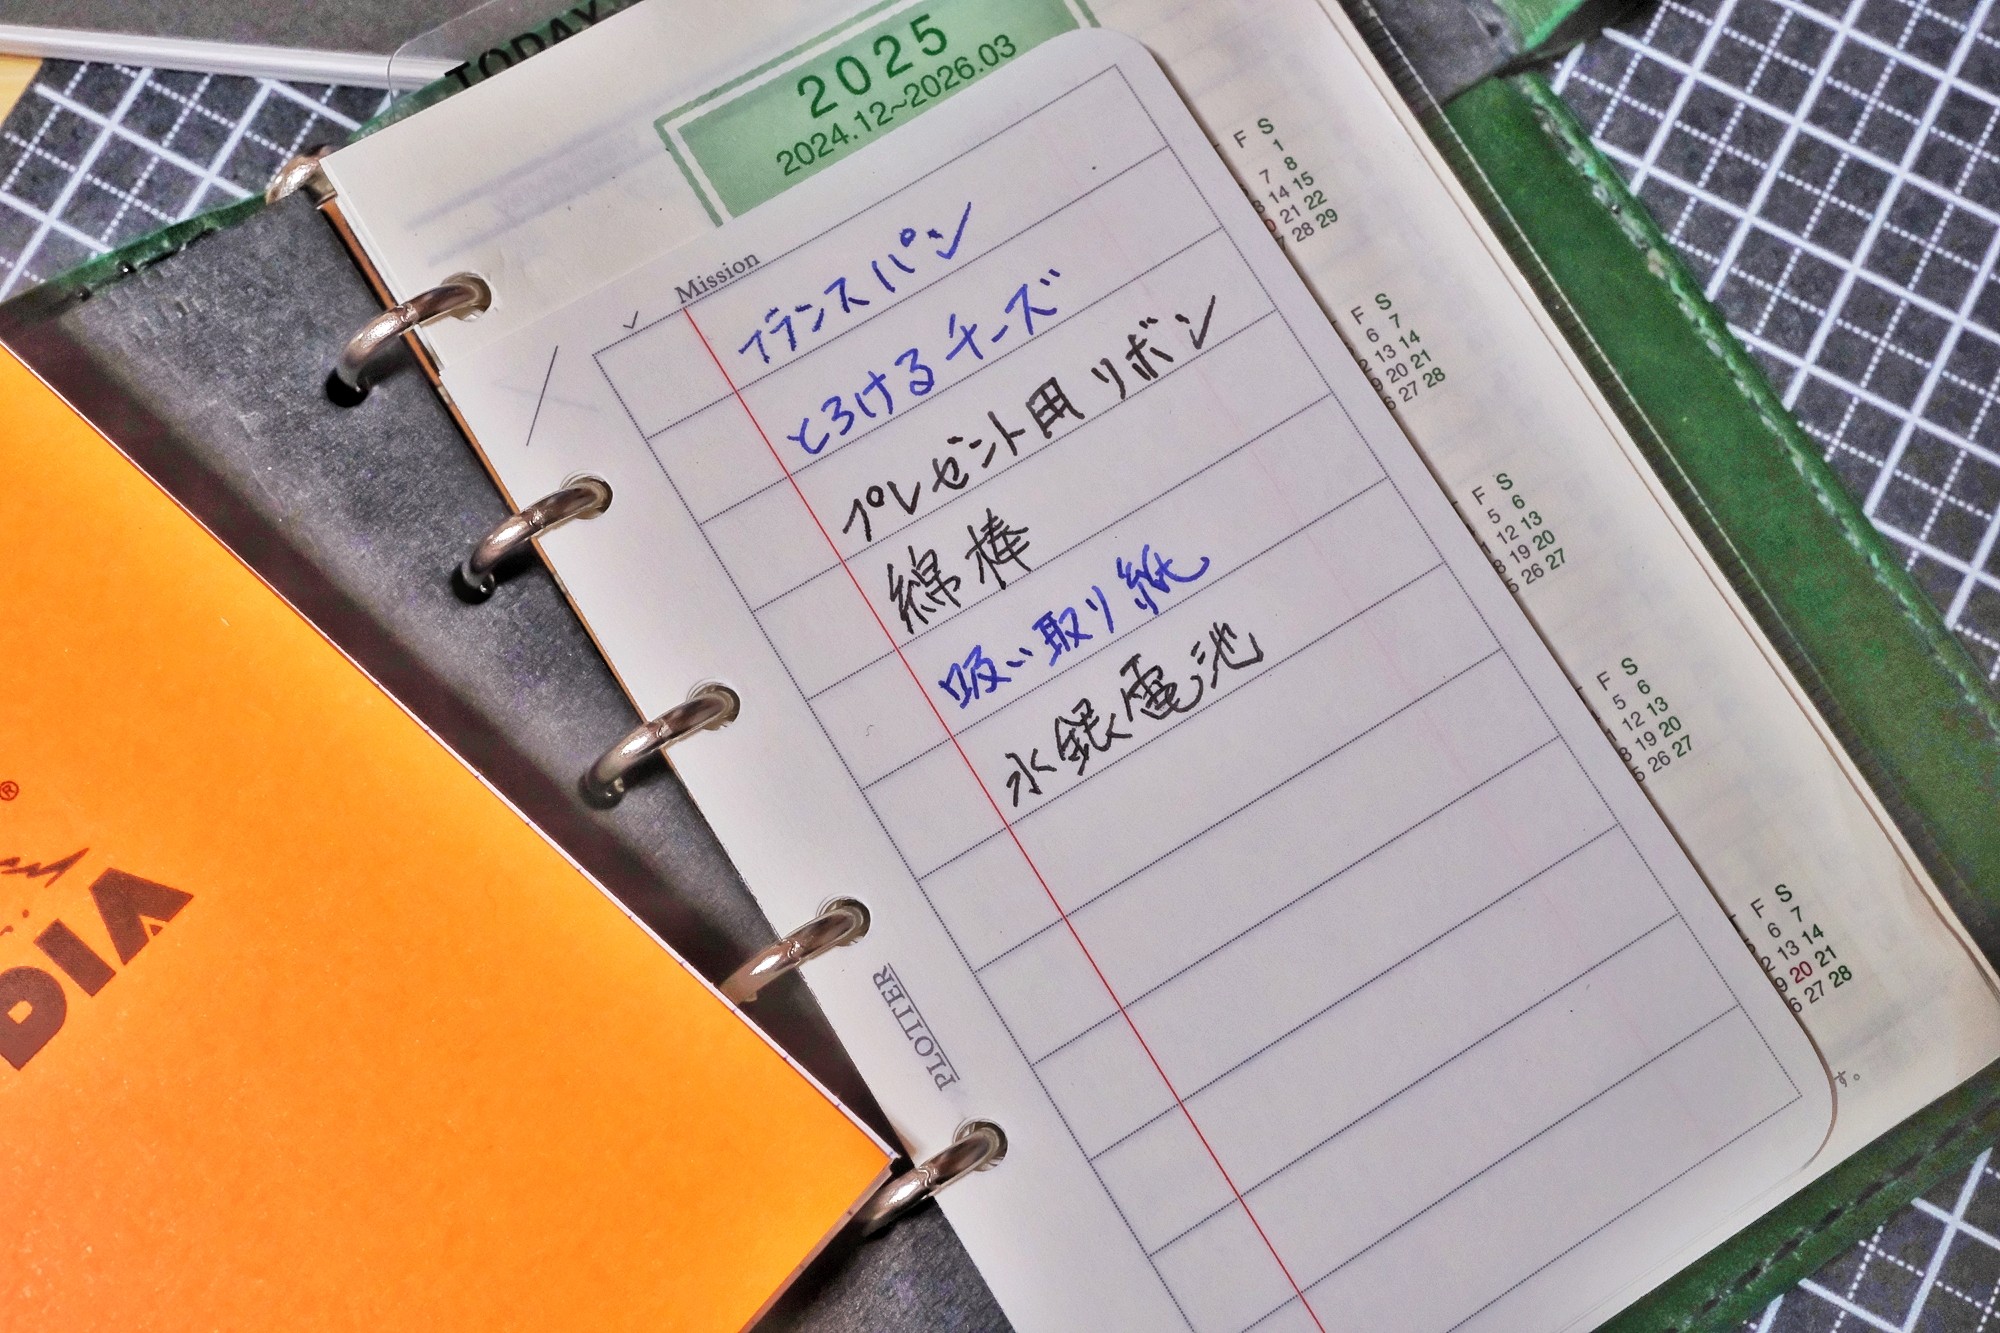 TODAY
2025
2024.12~2026.03
Mission
フランスパン
とろけるチーズ
プレゼント用リボン
綿棒
吸い取り紙
水銀電池
PLOTTER
F S
1
7 8
14 15
21 22
28 29
F S
6 7
13 14
20 21
27 28
F S
5 6
12 13
19 20
26 27
F S
5 6
12 13
19 20
26 27
F S
6 7
13 14
20 21
27 28
す。
®
DIA